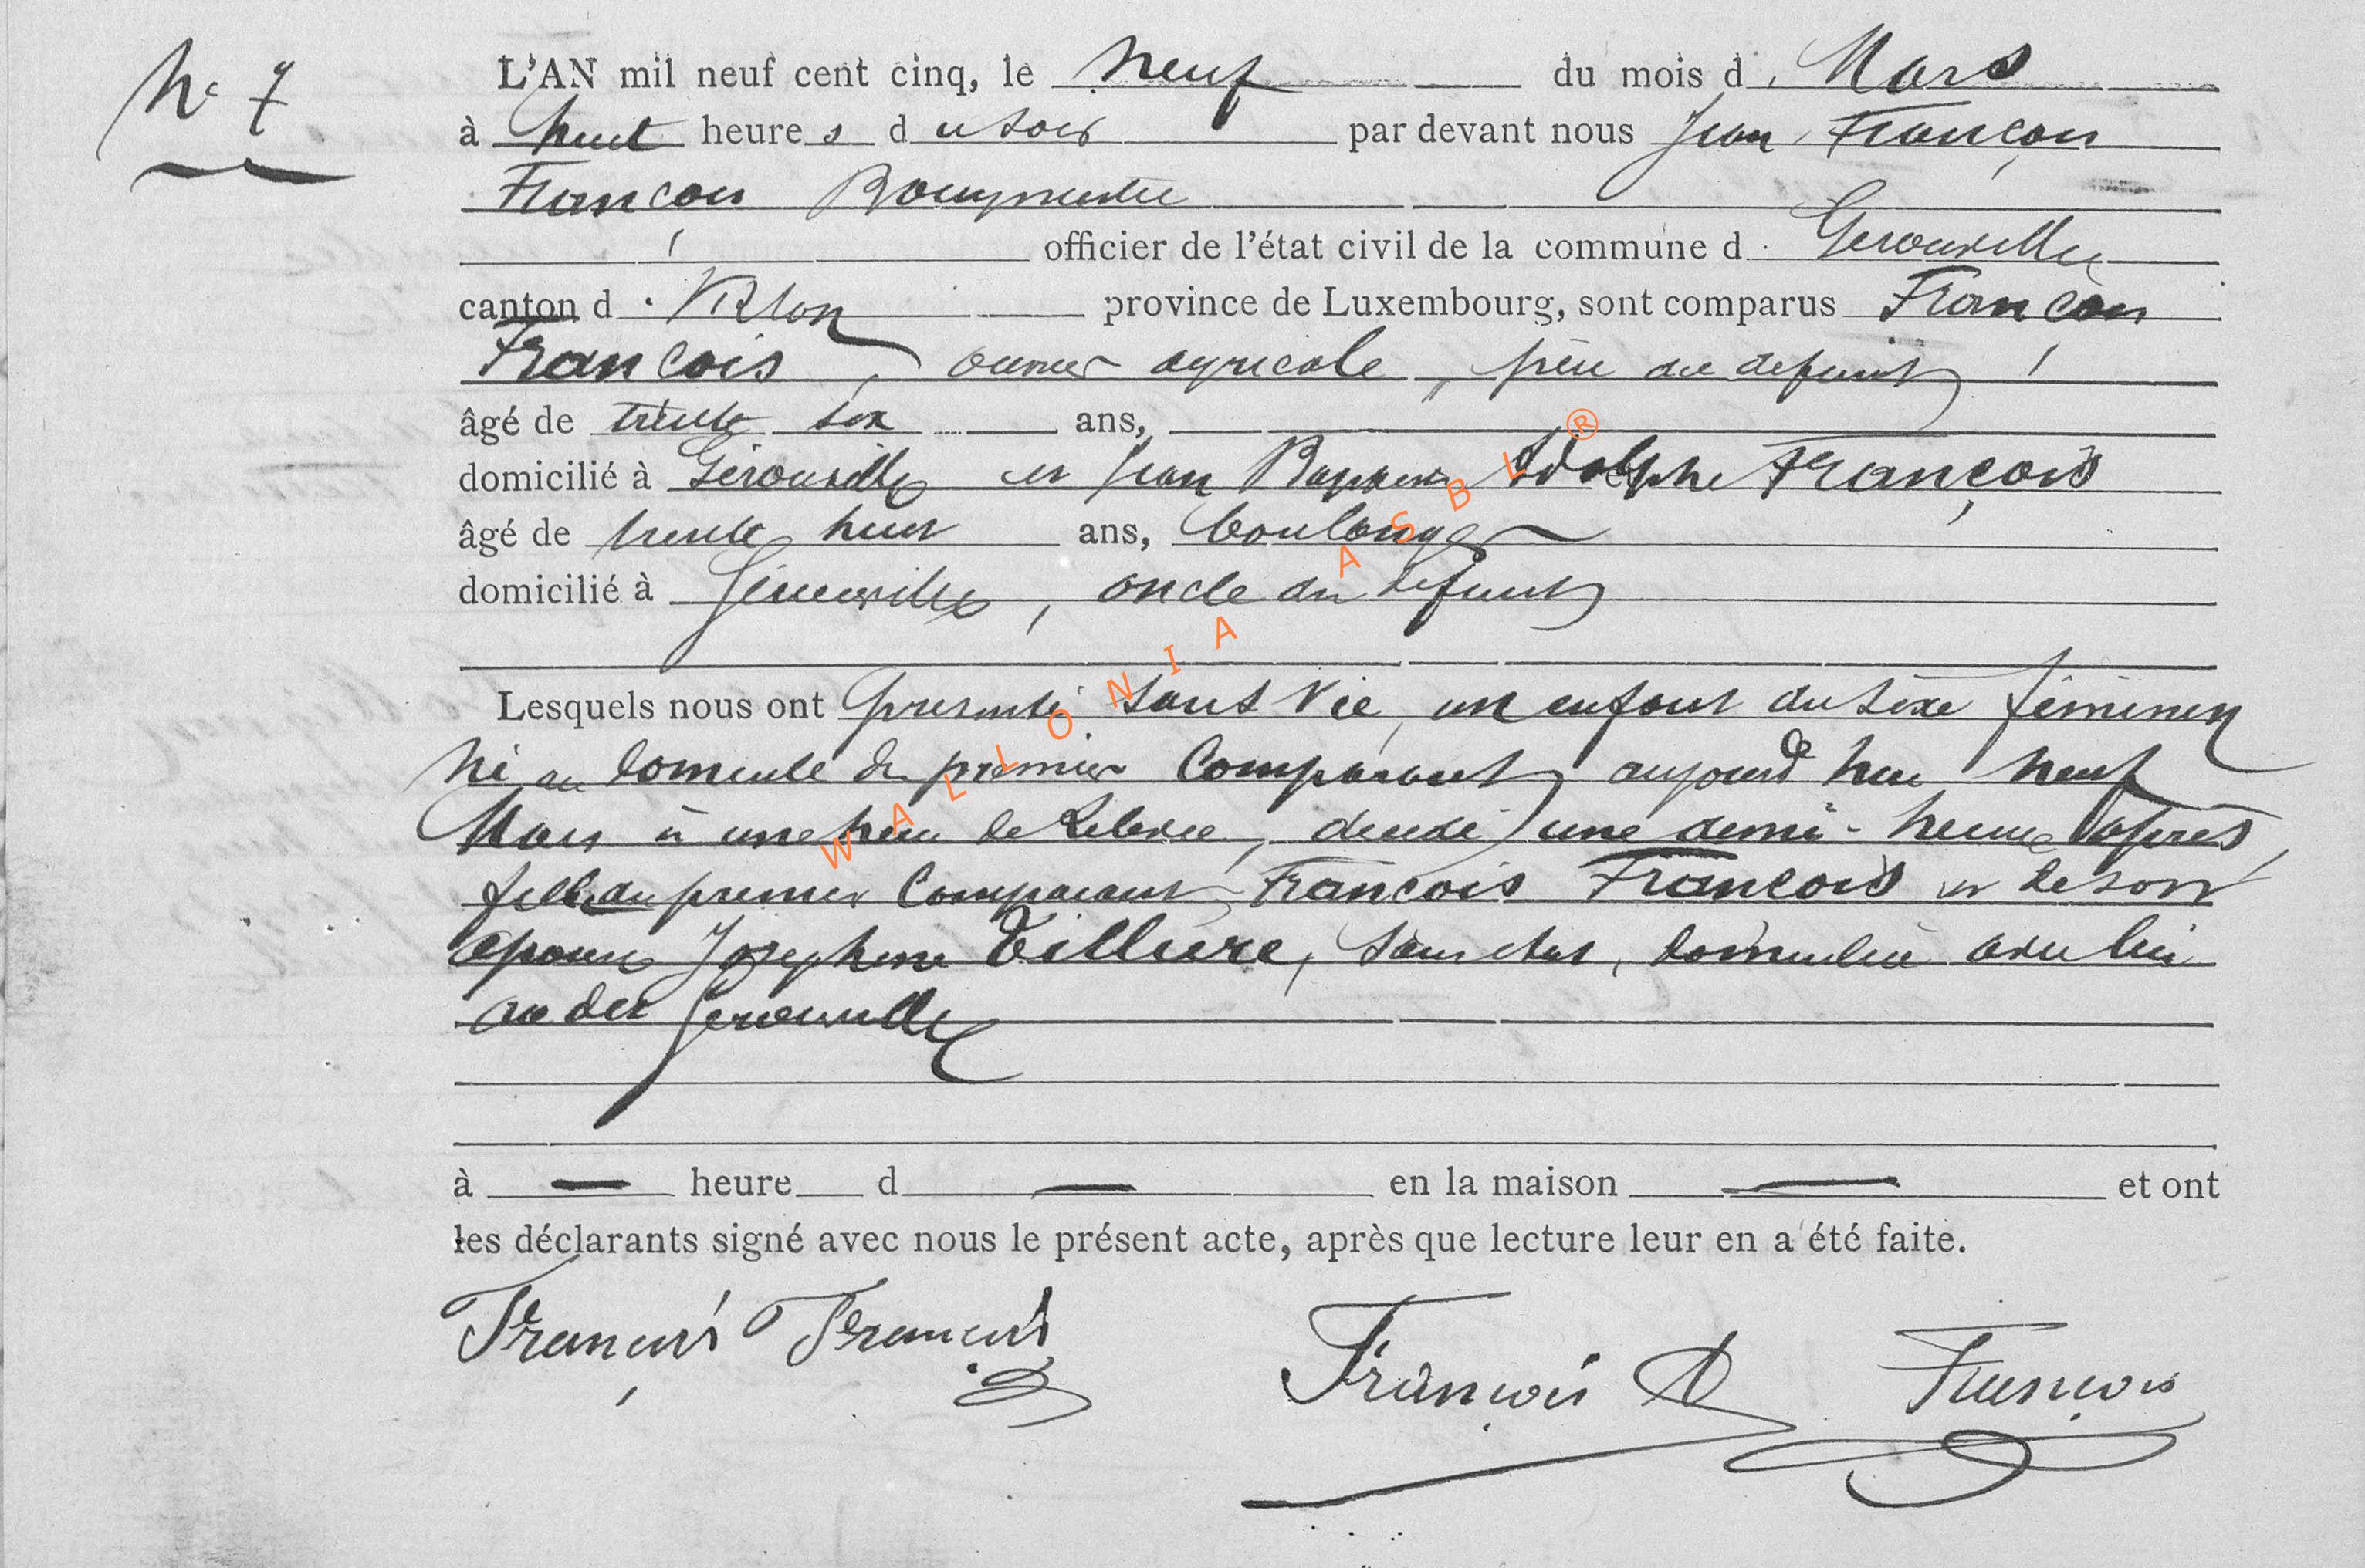 N° 7
L'AN mil neuf cent cinq, le neuf du mois d. Mars
à huit heures du soir par devant nous Jean François
François Bourgmestre
officier de l'état civil de la commune d. Gerouville
canton d. Virton province de Luxembourg, sont comparus François
François, ouvrier agricole, père du defunt
âgé de trente six ans,
domicilié à Gérouville et Jean Baptiste Adolphe François
âgé de trente huit ans, boulanger
domicilié à Gérouville, oncle du defunt
Lesquels nous ont presenté sans vie, un enfant du sexe féminin
né au domicile du premier Comparant aujourd'hui neuf
Mars à une heure de relevée, décédé une demi-heure après,
fille du premier Comparant François François et de son
épouse Josephine Tilliere, sans état, domiciliée avec lui
au dit Gerouville
à — heure d — en la maison — et ont
les déclarants signé avec nous le présent acte, après que lecture leur en a été faite.
François François
François A François
WALLONIA ASBL ®